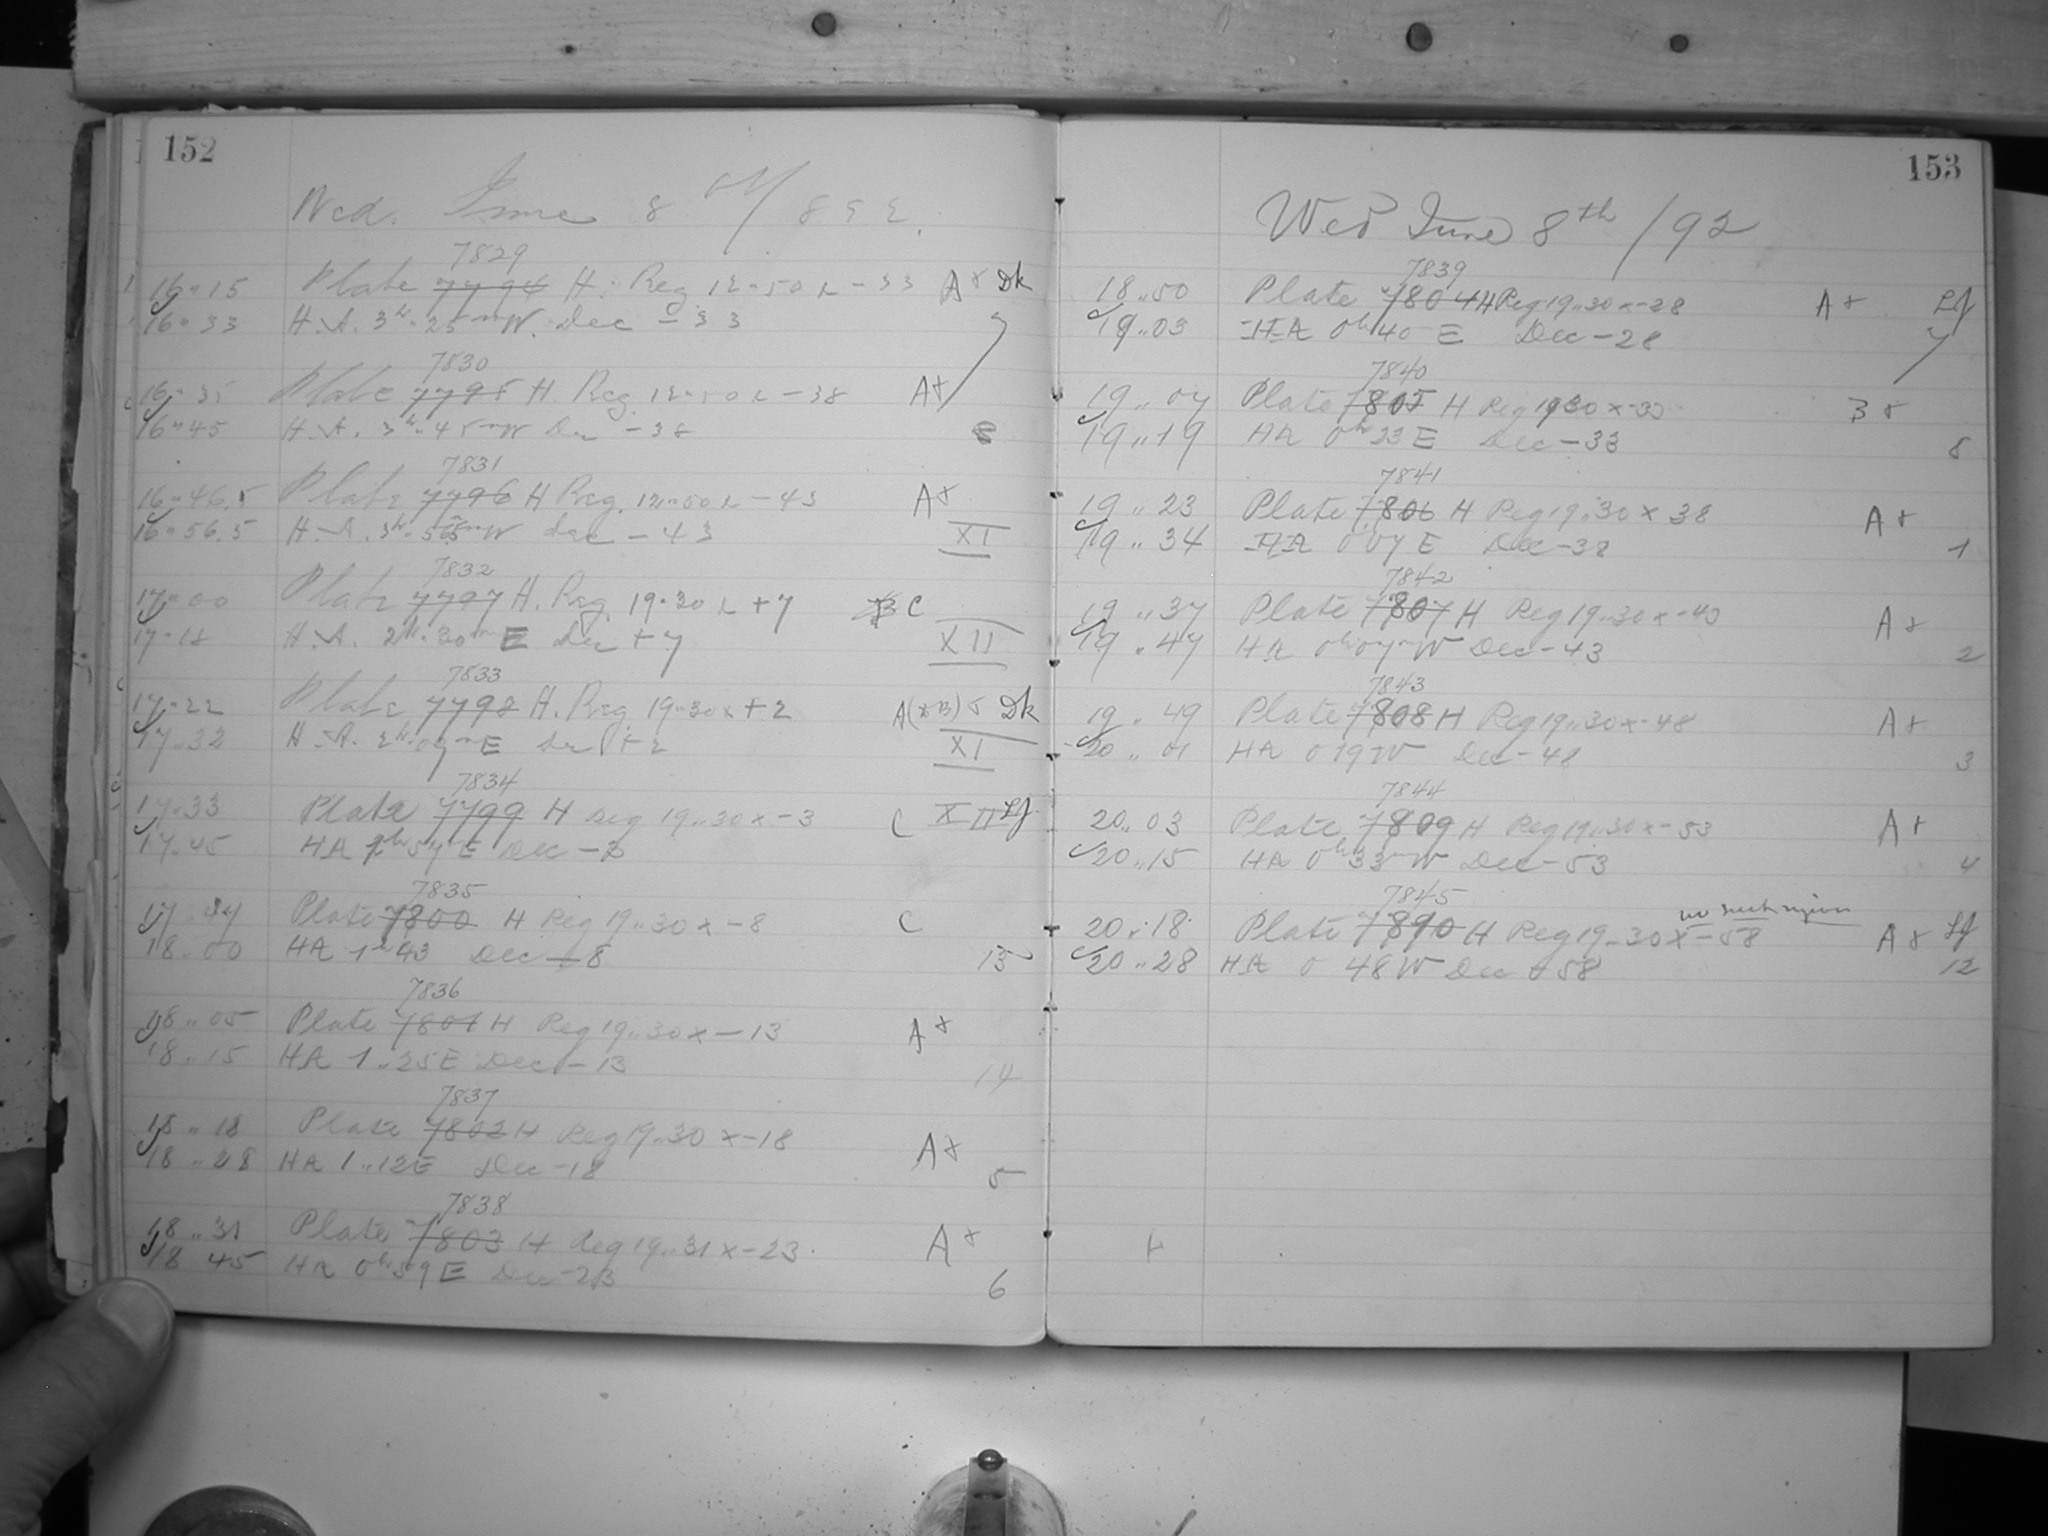 152
Wed. June 8th/892.
7829
16"15 Plate 7794 H. Reg 12"50 x -33 A+ Dk
16"33 H.A. 3h"25m W. Dec -33 7
7830
16"35 Plate 7795 H. Reg. 12"50 x -38 A+
16"45 H.A. 3h"45m W Dec -38 8
7831
16"46.5 Plate 7796 H Reg. 12"50 x -43 A+
16"56.5 H.A. 3h" W Dec -43 XI
7832
17"00 Plate 7797 H. Reg. 19"30 x +7 C
17"18 H.A. 2h"30m E Dec +7 XII
7833
17"22 Plate 7798 H. Reg 19"30 x +2 A(+B)5 Dk
17"32 H.A. 2h"07m E Dec +2 XI
7834
17"33 Plate 7799 H Reg 19"30 x -3 C XII Lf
17"45 HA 57 E Dec -3
7835
17"47 Plate 7800 H Reg 19"30 x -8 C
18"00 HA 1h43 Dec -8 13
7836
18"05 Plate 7801 H Reg 19"30 x -13 A+
18"15 HA 1"25 E Dec -13 14
7837
18"18 Plate 7802 H Reg 19"30 x -18 A+
18"28 HA 1"12 E Dec -18 5
7838
18"31 Plate 7803 H Reg 19"31 x -23 A+
18 45 HA 0h59 E Dec -23 6
153
Wed June 8th/92
7839
18"50 Plate 7804 H Reg 19"30 x -28 A+ Lf
19"03 HA 0h40 E Dec -28 7
7840
19"07 Plate 7805 H Reg 1930 x -33 B+
19"19 HA 0h23 E Dec -33 8
7841
19"23 Plate 7806 H Reg 19"30 x 38 A+
19"34 HA 0"07 E Dec -38 1
7842
19"37 Plate 7807 H Reg 19"30 x -43 A+
19"47 HA 0h07m W Dec -43 2
7843
19"49 Plate 7808 H Reg 19"30 x -48 A+
20"01 HA 0 19 W Dec -48 3
7844
20"03 Plate 7809 H Reg 19"30 x -53 A+
20"15 HA 0h33m W Dec -53 4
7845
no such region
20"18 Plate 7890 H Reg 19"30 x -58 A+ Lf
20"28 HA 0 48 W Dec -58 12